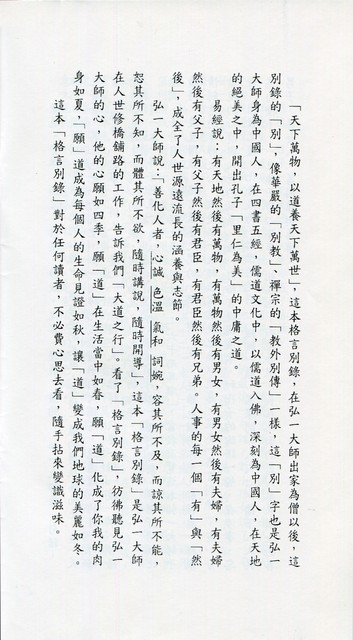 「天下萬物，以道養天下萬世」，這本格言別錄，在弘一大師出家為僧以後，這
別錄的「別」，像華嚴的「別教」、禪宗的「教外別傳」一樣，這「別」字也是弘一
大師身為中國人，在四書五經，儒道文化中，以儒道入佛，深刻為中國人，在天地
的絕美之中，開出孔子「里仁為美」的中庸之道。
易經說：有天地然後有萬物，有萬物然後有男女，有男女然後有夫婦，有夫婦
然後有父子，有父子然後有君臣，有君臣然後有兄弟。人事的每一個「有」與「然
後」，成全了人世源遠流長的涵養與志節。
弘一大師說：「善化人者，心誠 色溫 氣和 詞婉，容其所不及，而諒其所不能，
恕其所不知，而體其所不欲，隨時講說，隨時開導」，這本「格言別錄」是弘一大師
在人世修橋鋪路的工作，告訴我們「大道之行」。看了「格言別錄」，彷彿聽見弘一
大師的心，他的心願如四季，願「道」在生活當中如春，願「道」化成了你我的肉
身如夏，「願」道成為每個人的生命見證如秋，讓「道」變成我們地球的美麗如冬。
這本「格言別錄」對於任何讀者，不必費心思去看，隨手拈來變識滋味。